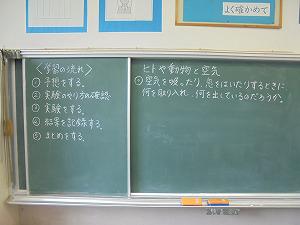 よく確かめて
<学習の流れ>
① 予想をする。
② 実験のやり方の確認
③ 実験をする。
④ 結果を記録する。
⑤ まとめをする。
ヒトや動物と空気
空気を吸ったり、息をはいたりするときに
何を取り入れ、何を出しているのだろうか。